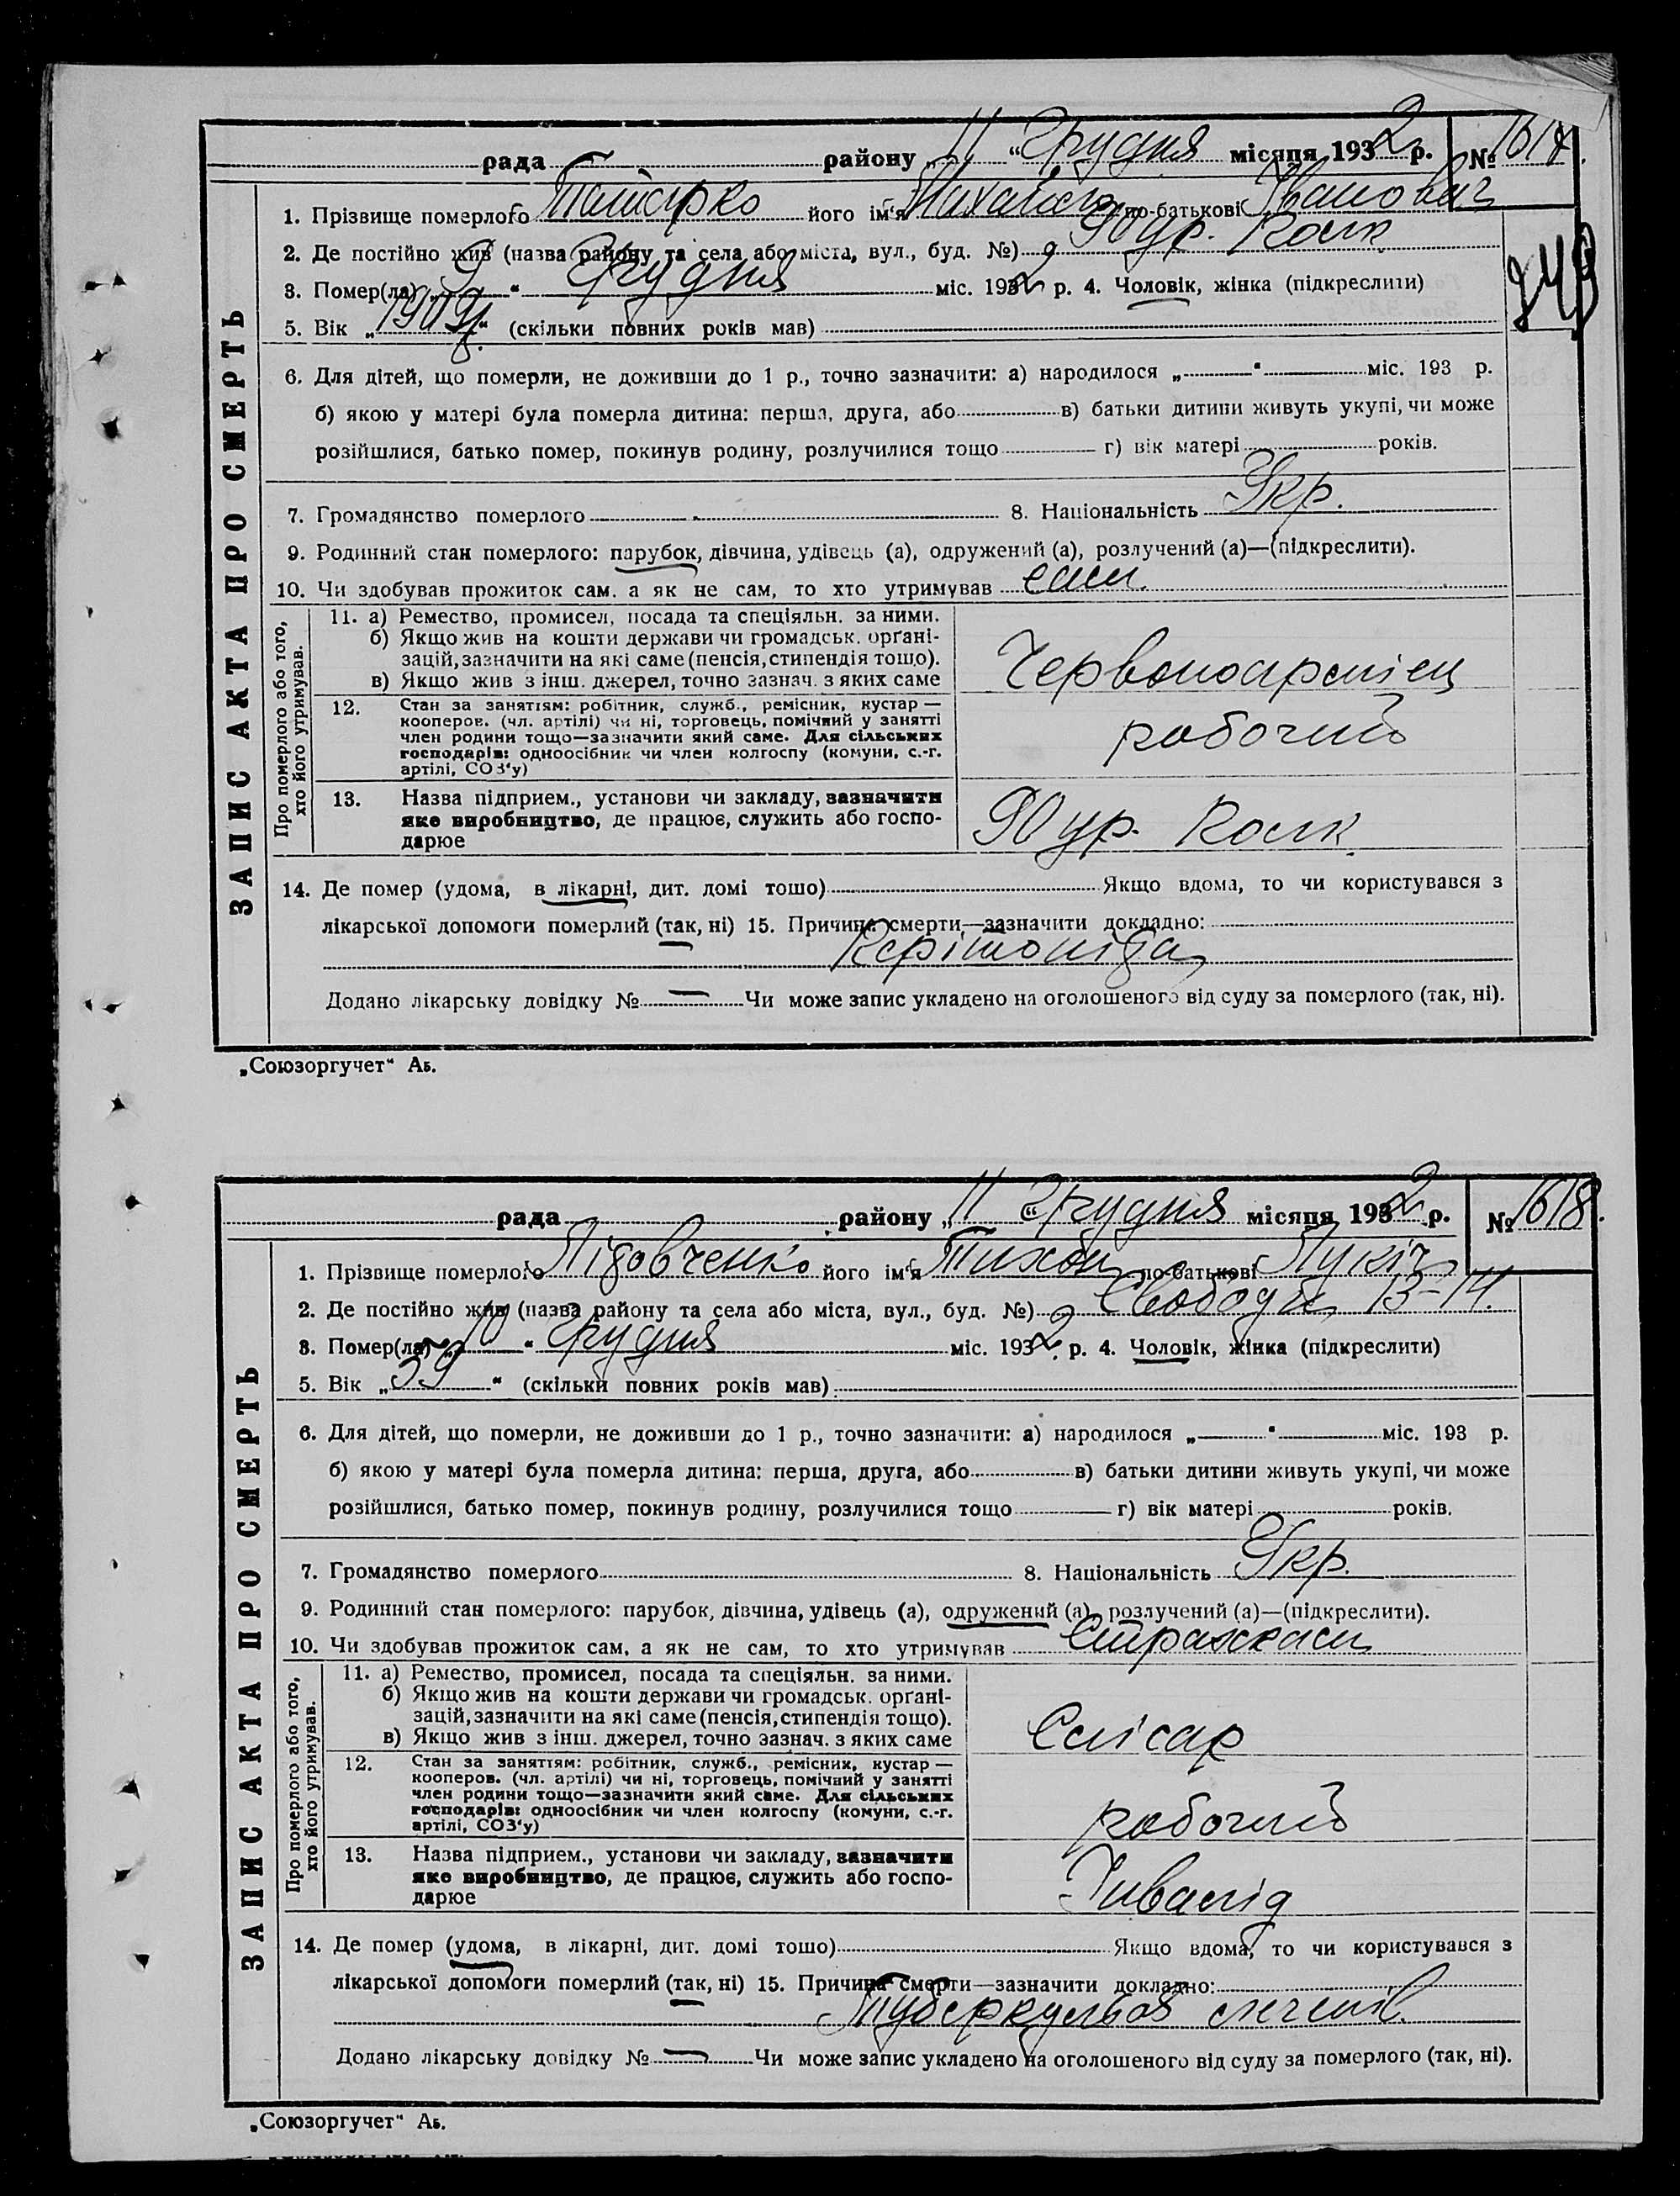 рада района „11“ Грудня місяця 1932 р. № 1617.
1. Прізвище померлого його ім'я Михайло по-батькові Іванович
2. Де постійно жив (назва району та села або міста, вул., буд. №)
3. Помер(ла) „9“ Грудня міс. 1932 р. 4. Чоловік, жінка (підкреслити)
5. Вік „1909 р.“ (скільки повних років мав)
6. Для дітей, що померли, не доживши до 1 р., точно зазначити: а) народилося „ “ міс. 193 р.
б) якою у матері була померла дитина: перша, друга, або в) батьки дитини живуть укупі, чи може
розійшлися, батько помер, покинув родину, розлучилися тощо г) вік матері років.
7. Громадянство померлого 8. Національність Укр.
9. Родинний стан померлого: парубок, дівчина, удівець (а), одружений (а), розлучений (а)—(підкреслити).
10. Чи здобував прожиток сам, а як не сам, то хто утримував сам
ЗАПИС АКТА ПРО СМЕРТЬ
Про померлого або того,
хто його утримував.
11. а) Ремество, промисел, посада та спеціяльн. за ними.
б) Якщо жив на кошти держави чи громадськ. орґані-
зацій, зазначити на які саме (пенсія, стипендія тощо).
в) Якщо жив з інш. джерел, точно зазнач. з яких саме
Червоноармієц
12. Стан за заняттям: робітник, служб., ремісник, кустар—
кооперов. (чл. артілі) чи ні, торговець, помічний у занятті
член родини тощо—зазначити який саме. Для сільських
господарів: одноосібник чи член колгоспу (комуни, с.-г.
артілі, СОЗ'у)
робочий
13. Назва підприєм., установи чи закладу, зазначити
яке виробництво, де працює, служить або госпо-
дарює
14. Де помер (удома, в лікарні, дит. домі тощо) Якщо вдома, то чи користувався з
лікарської допомоги померлий (так, ні) 15. Причина смерти—зазначити докладно:
Додано лікарську довідку № — Чи може запис укладено на оголошеного від суду за померлого (так, ні).
„Союзоргучет“ Аб.
рада району „11“ Грудня місяця 1932 р. № 1618.
1. Прізвище померлого його ім'я Тихон по-батькові Лукіч
2. Де постійно жив (назва району та села або міста, вул., буд. №) Свободи 13-14.
3. Помер(ла) „10“ Грудня міс. 1932 р. 4. Чоловік, жінка (підкреслити)
5. Вік „59“ (скільки повних років мав)
6. Для дітей, що померли, не доживши до 1 р., точно зазначити: а) народилося „ “ міс. 193 р.
б) якою у матері була померла дитина: перша, друга, або в) батьки дитини живуть укупі, чи може
розійшлися, батько помер, покинув родину, розлучилися тощо г) вік матері років.
7. Громадянство померлого 8. Національність Укр.
9. Родинний стан померлого: парубок, дівчина, удівець (а), одружений (а), розлучений (а)—(підкреслити).
10. Чи здобував прожиток сам, а як не сам, то хто утримував Страхкаси
ЗАПИС АКТА ПРО СМЕРТЬ
Про померлого або того,
хто його утримував.
11. а) Ремество, промисел, посада та спеціяльн. за ними.
б) Якщо жив на кошти держави чи громадськ. орґані-
зацій, зазначити на які саме (пенсія, стипендія тощо).
в) Якщо жив з інш. джерел, точно зазнач. з яких саме
Слісар
12. Стан за заняттям: робітник, служб., ремісник, кустар—
кооперов. (чл. артілі) чи ні, торговець, помічний у занятті
член родини тощо—зазначити який саме. Для сільських
господарів: одноосібник чи член колгоспу (комуни, с.-г.
артілі, СОЗ'у)
робочий
13. Назва підприєм., установи чи закладу, зазначити
яке виробництво, де працює, служить або госпо-
дарює
Інвалід
14. Де помер (удома, в лікарні, дит. домі тощо) Якщо вдома, то чи користувався з
лікарської допомоги померлий (так, ні) 15. Причина смерти—зазначити докладно:
Туберкульоз легенів.
Додано лікарську довідку № — Чи може запис укладено на оголошеного від суду за померлого (так, ні).
„Союзоргучет“ Аб.